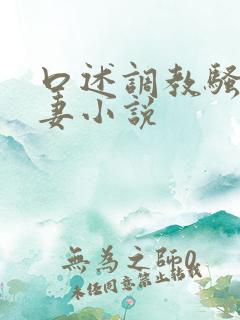 口述調教騷
妻小説
無為之師0
未经同意禁止转载